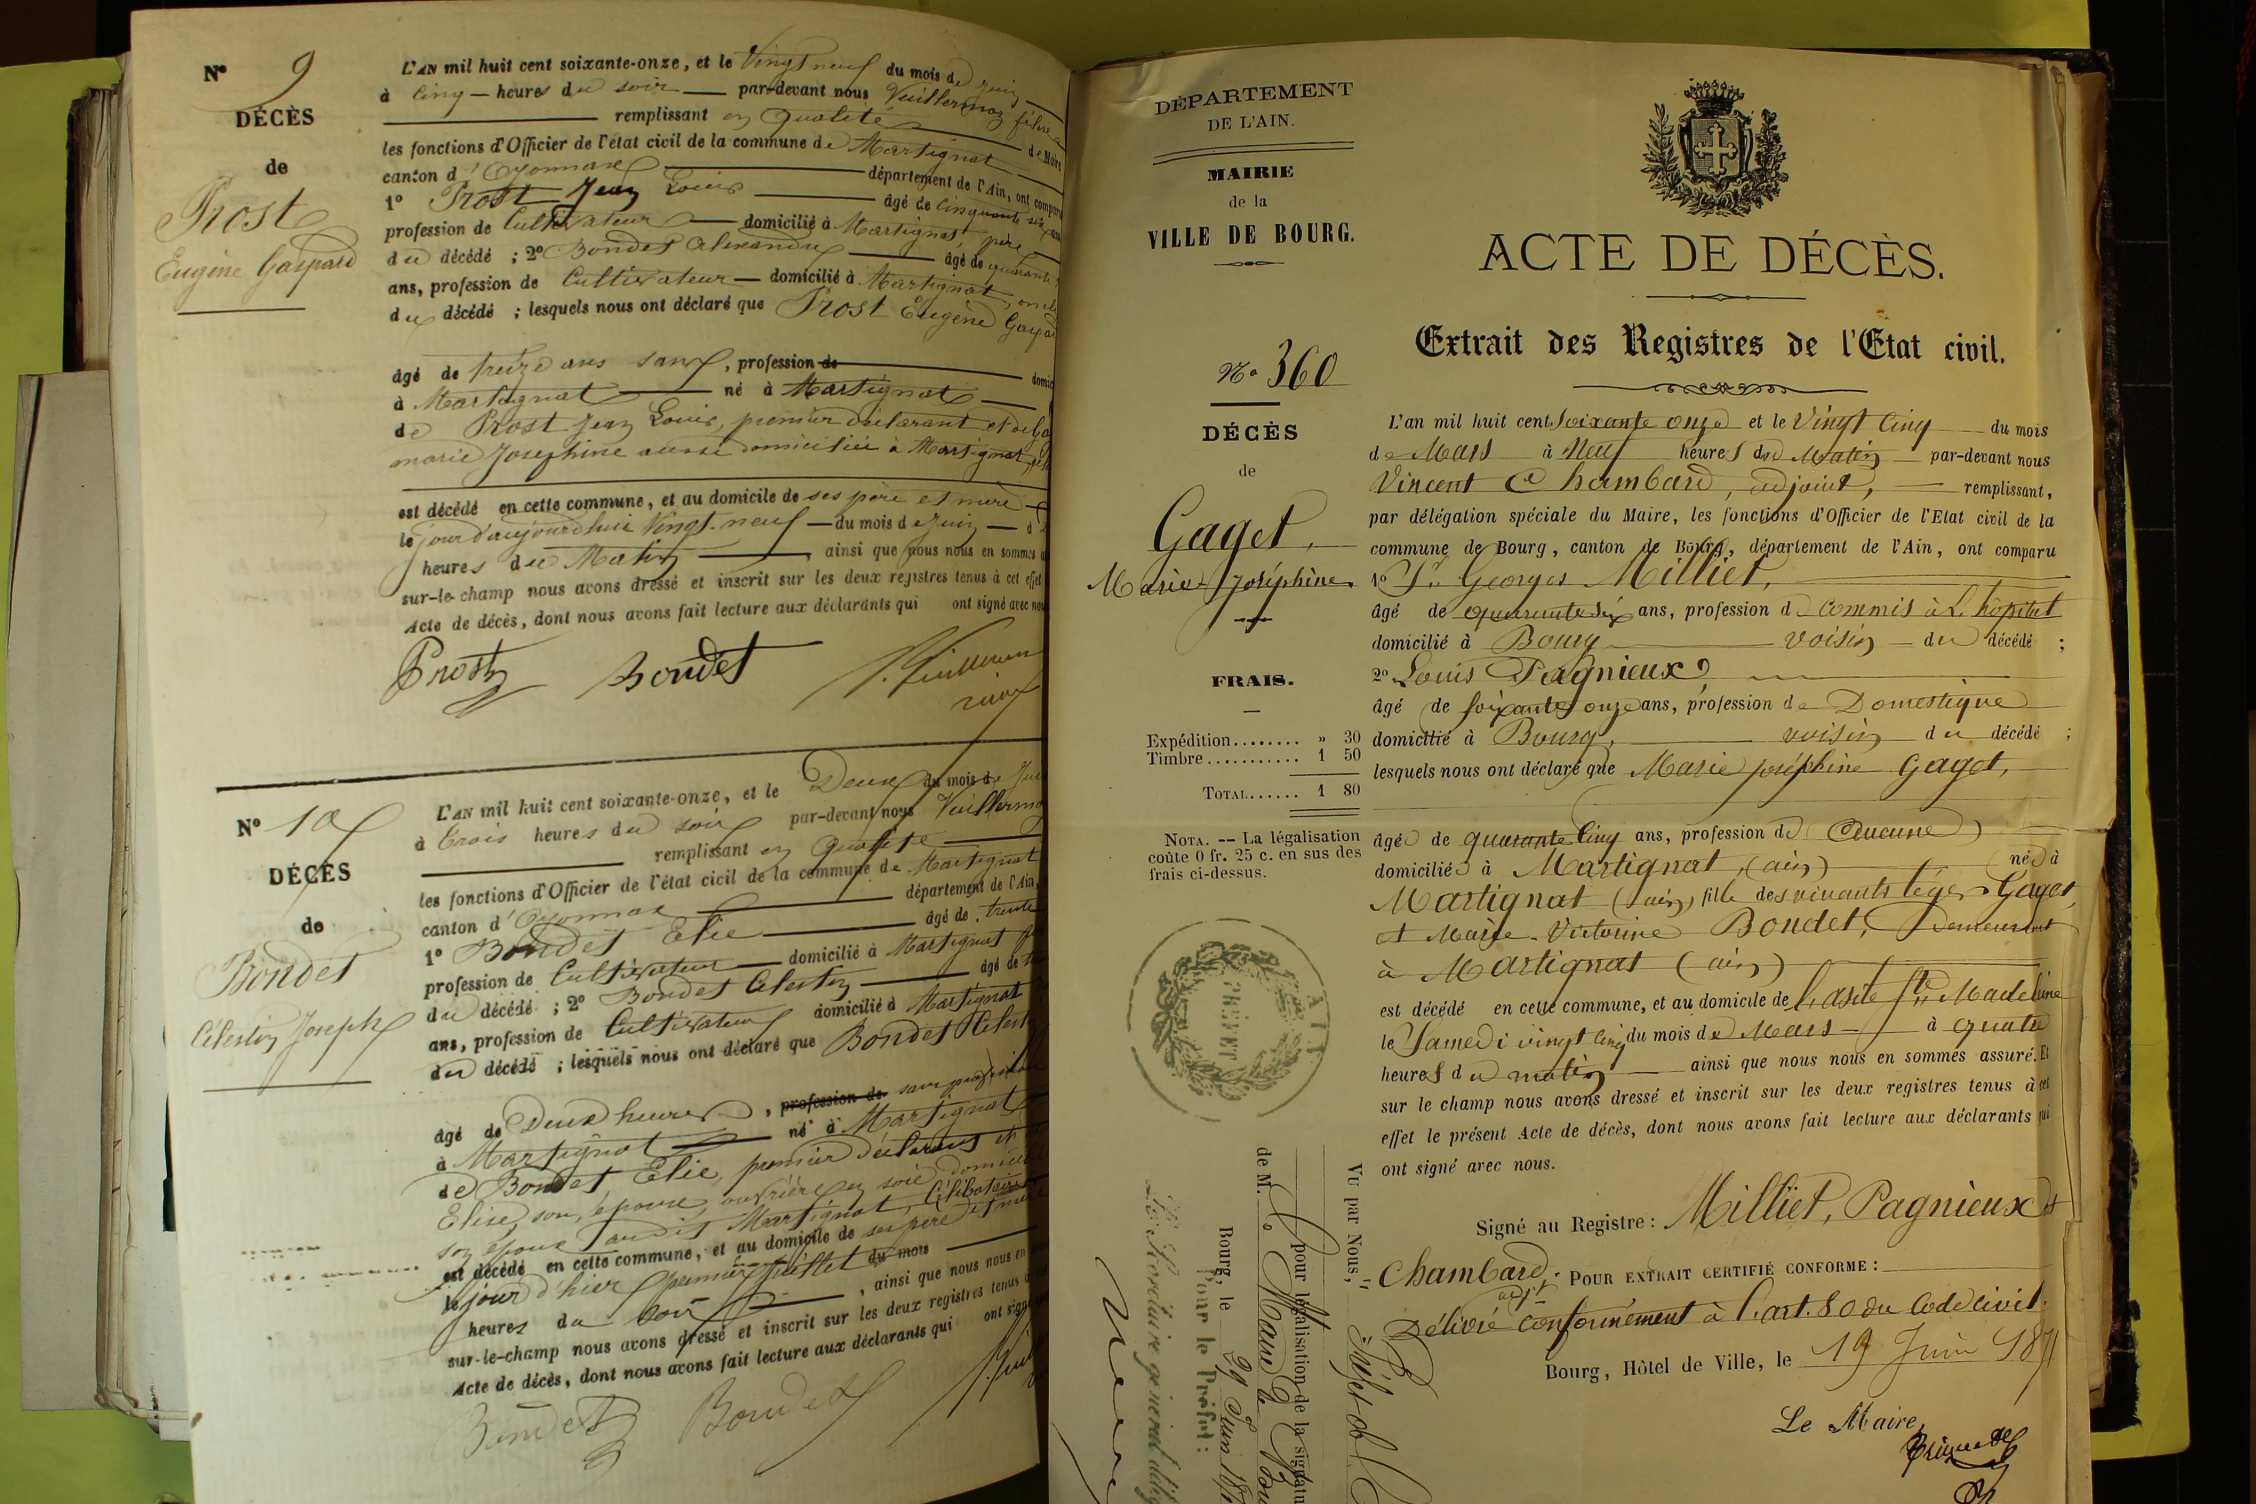 N° 9
DÉCÈS
de
Prost
Eugène Gaspard
L'AN mil huit cent soixante-onze, et le Vingt neuf du mois de Juin
à Cinq heures du soir par-devant nous Vuillermoz
remplissant en qualité de Maire
les fonctions d'Officier de l'état civil de la commune de Martignat
canton d'Oyonnax département de l'Ain, ont comparu
1° Prost Jean Louis âgé de cinquante six ans
profession de Cultivateur domicilié à Martignat père
du décédé ; 2° Bondet Alexandre âgé de quarante
ans, profession de Cultivateur domicilié à Martignat, oncle
du décédé ; lesquels nous ont déclaré que Prost Eugène Gaspard
âgé de treize ans sans, profession de domic
à Martignat né à Martignat
de Prost Jean Louis, premier déclarant et de
marie Josephine aussi domiciliée à Martignat
est décédé en cette commune, et au domicile de ses père et mère
le jour d'aujourd'hui Vingt-neuf du mois de Juin
heures du Matin ainsi que nous nous en sommes
sur-le-champ nous avons dressé et inscrit sur les deux registres tenus à cet effet
Acte de décès, dont nous avons fait lecture aux déclarants qui ont signé avec nous
Prost Bondet Vuillermoz
N° 10
DÉCÈS
de
Bondet
Célestin Joseph
L'AN mil huit cent soixante-onze, et le Deux du mois de Jui
à trois heures du soir par-devant nous Vuillermo
remplissant en qualité
les fonctions d'Officier de l'état civil de la commune de Martignat
canton d'Oyonnax département de l'Ain,
1° Bondet Elie âgé de trente
profession de Cultivateur domicilié à Martignat
du décédé ; 2° Bondet Célestin âgé de
ans, profession de Cultivateur domicilié à Martignat
du décédé ; lesquels nous ont déclaré que Bondet Célest
âgé de Deux heures, profession de sans profession
à Martignat né à Martignat
de Bondet Elie, premier déclarant et
Elise, son épouse, ouvrière en soie domicil
son épouse Martignat, Célibataire
est décédé en cette commune, et au domicile de ses père et mère
le jour d'hier premier Juillet du mois
heures du soir, ainsi que nous nous en
sur-le-champ nous avons dressé et inscrit sur les deux registres tenus
Acte de décès, dont nous avons fait lecture aux déclarants qui ont signé
Bondet Bondet
DÉPARTEMENT
DE L'AIN.
MAIRIE
de la
VILLE DE BOURG.
N° 360
DÉCÈS
de
Gaget,
Marie Joséphine
FRAIS.
Expédition........ » 30
Timbre........... 1 50
TOTAL...... 1 80
NOTA. -- La légalisation
coûte 0 fr. 25 c. en sus des
frais ci-dessus.
PRÉFET
AIN
ACTE DE DÉCÈS.
Extrait des Registres de l'Etat civil.
L'an mil huit cent soixante onze et le Vingt Cinq du mois
de Mars à Neuf heures du Matin par-devant nous
Vincent Chambard, adjoint, remplissant,
par délégation spéciale du Maire, les fonctions d'Officier de l'Etat civil de la
commune de Bourg, canton de Bourg, département de l'Ain, ont comparu
1° Sr. Georges Milliet,
âgé de quarante six ans, profession de Commis à L'hôpital
domicilié à Bourg voisin du décédé ;
2° Louis Pagnieux
âgé de soixante onze ans, profession de Domestique
domicilié à Bourg, voisin du décédé ;
lesquels nous ont déclaré que Marie Joséphine Gaget,
âgée de quarante Cinq ans, profession de Aucune
domiciliée à Martignat, (ain) née à
Martignat (ain) fille des vivants Léger Gaget,
et Marie Victorine Bondet, Demeurant
à Martignat (ain)
est décédé en cette commune, et au domicile de l'asile Ste Madeleine
le Samedi vingt cinq du mois de Mars à quatre
heures du matin ainsi que nous nous en sommes assuré. Et
sur le champ nous avons dressé et inscrit sur les deux registres tenus à cet
effet le présent Acte de décès, dont nous avons fait lecture aux déclarants qui
ont signé avec nous.
Signé au Registre : Milliet, Pagnieux et
Chambard, adjt. POUR EXTRAIT CERTIFIÉ CONFORME :
Délivré conformément à l'art. 80 du Code Civil.
Bourg, Hôtel de Ville, le 19 Juin 1871
Le Maire,
Vu par Nous, Préfet de l'
pour légalisation de la signatu
de M. le Maire de Bou
Bourg, le 29 Juin 18
Pour le Préfet :
Le Secrétaire général délég